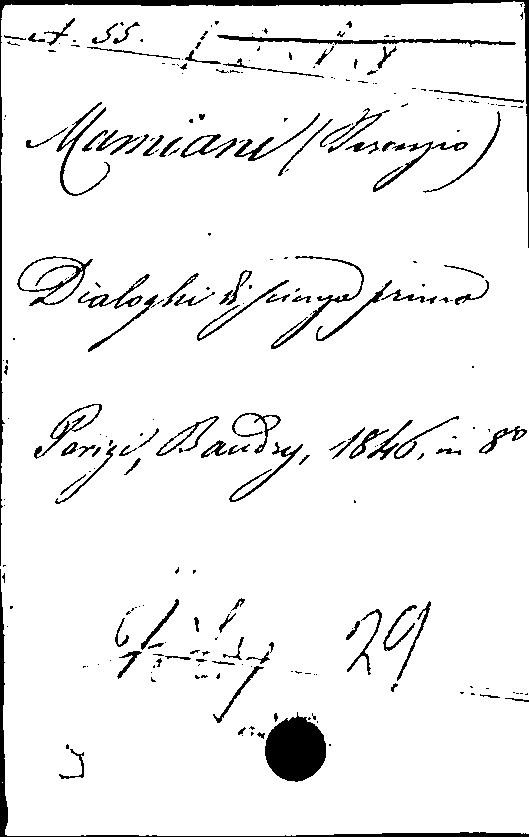 A. 55.
Mamiani (Terenzio)
Dialoghi di scienza prima
Parigi, Baudry, 1846, in 8°
29